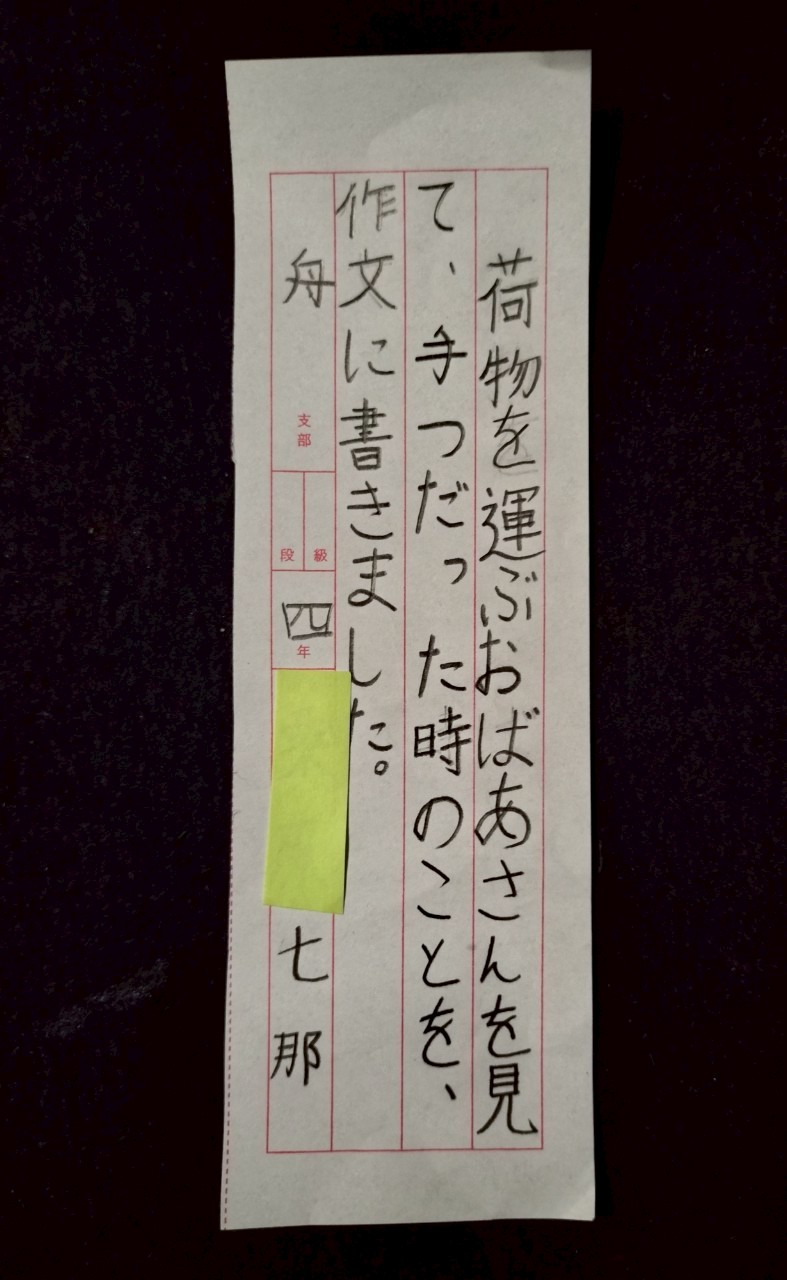 荷物を運ぶおばあさんを見
て、手つだった時のことを、
作文に書きました。
舟 支部
級
段
四年
七那